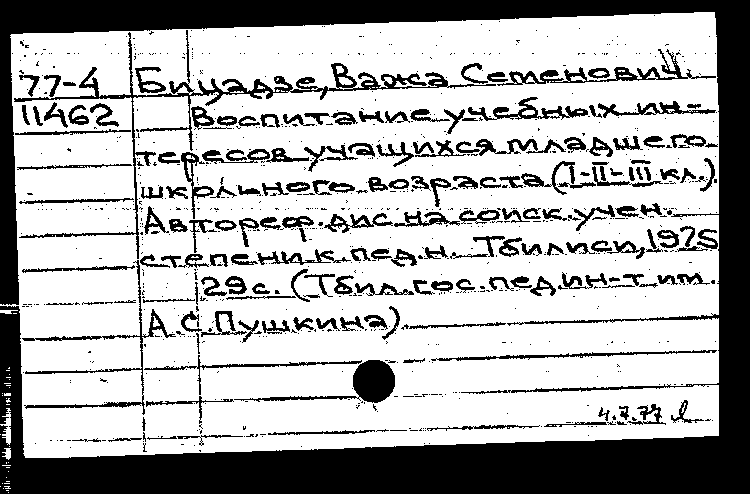 77-4 Бицадзе, Важа Семенович.
11462 Воспитание учебных ин-
тересов учащихся младшего
школьного возраста (I-II-III кл.)
Автореф. дис. на соиск. учен.
степени к. пед. н. Тбилиси, 1975
29 с. (Тбил. гос. пед. ин-т им.
А. С. Пушкина).
4.7.77